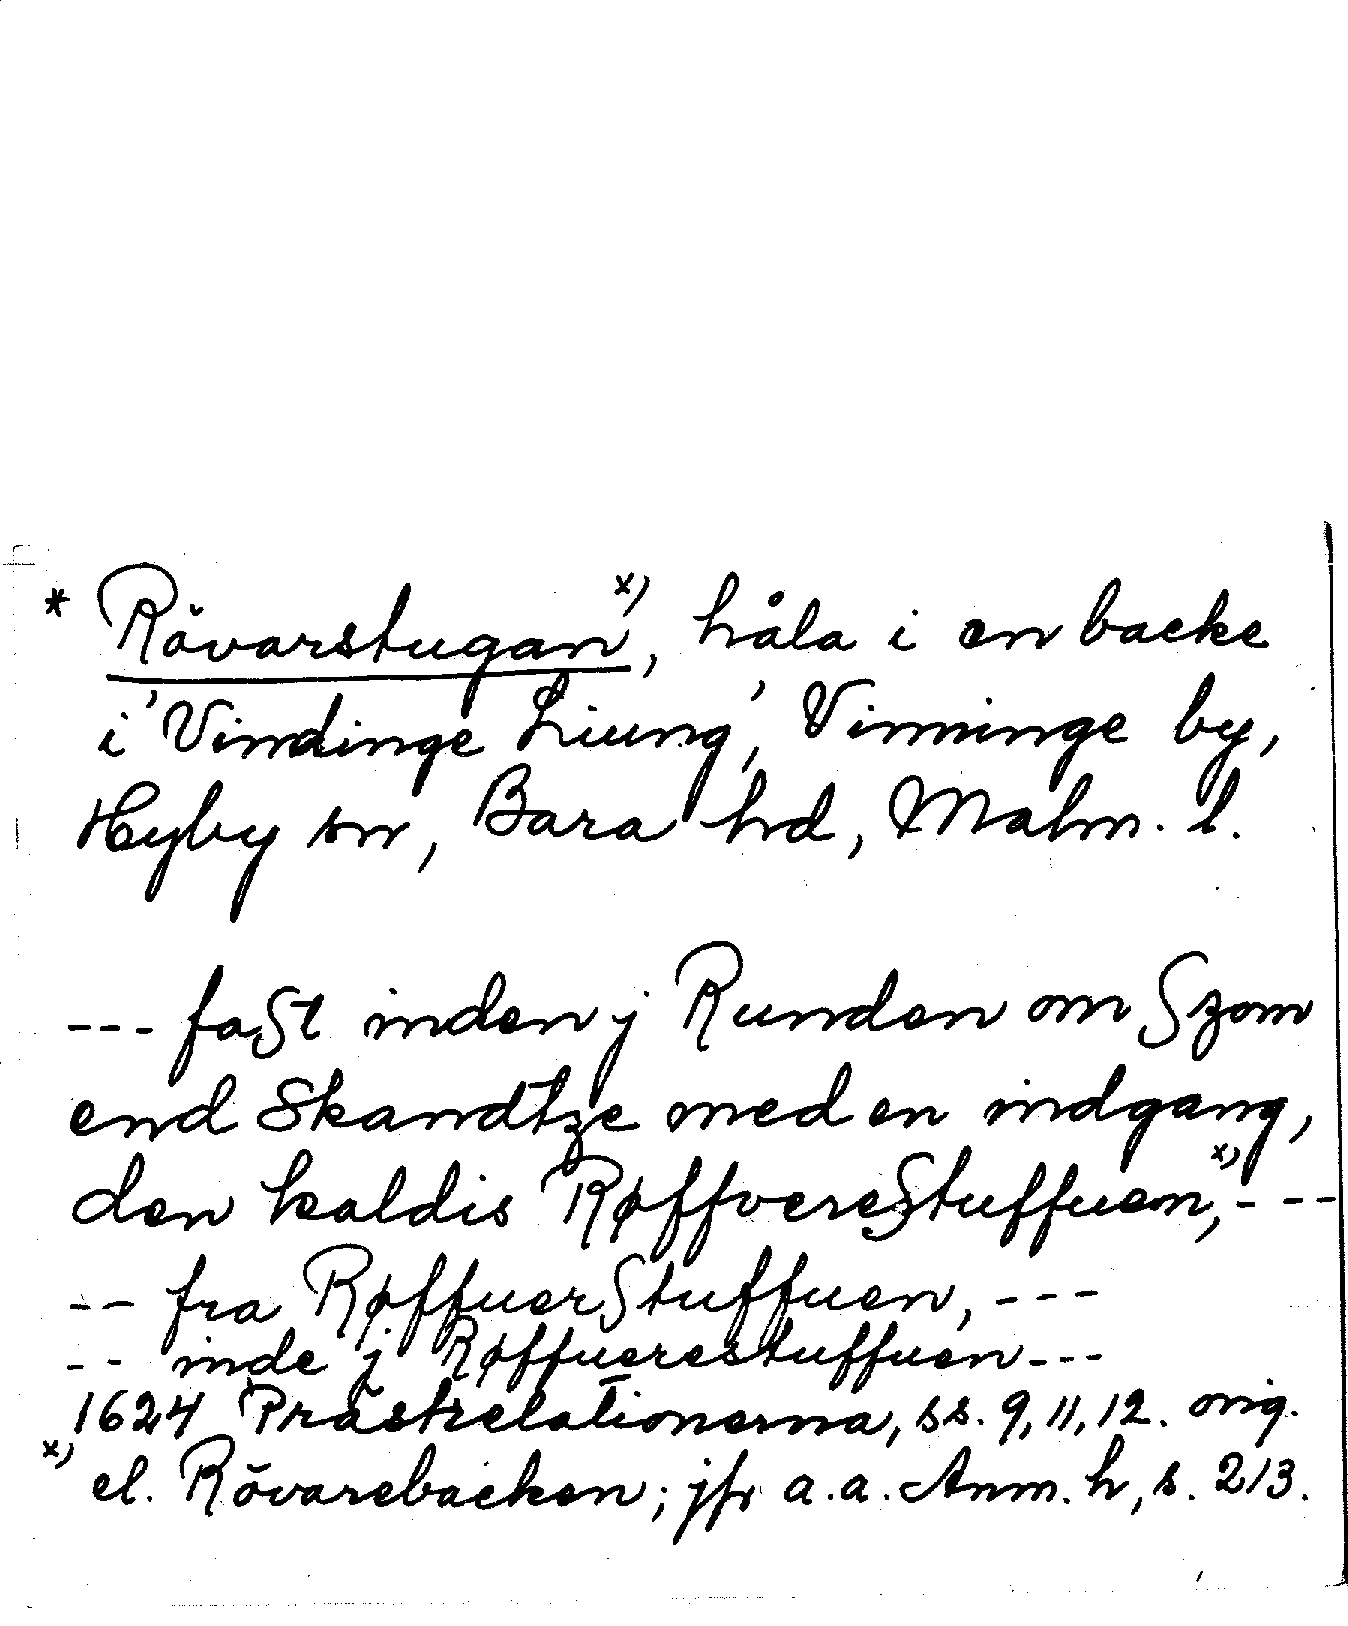 * Rövarstugan x), håla i en backe
i 'Vindinge Liung', Vinninge by,
Hyby sn, Bara hd, Malm. l.
--- faSt inden j Runden om Szom
end Skandtze med en indgang,
den kaldis RøffvereStuffuen x), ---
-- fra RøffuerStuffuen, ---
-- inde j Røffuerestuffuen ---
1624 Prästrelationerna, ss. 9, 11, 12. orig.
x) el. Rövarebacken; jfr a.a. Anm. h, s. 213.